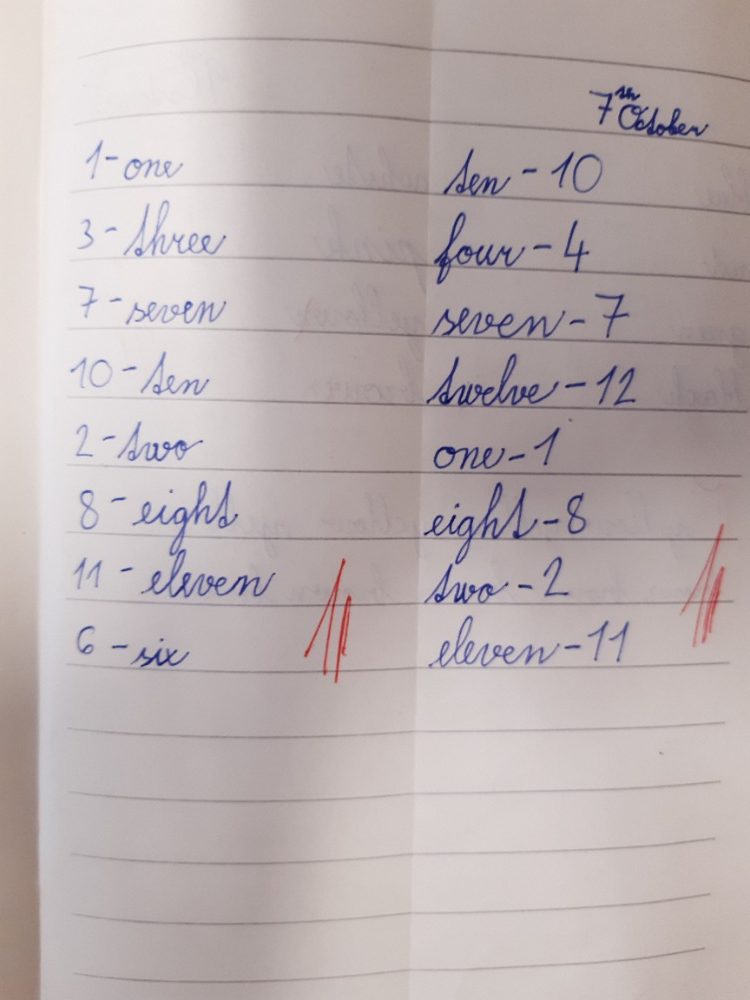 7th October
1 - one
3 - three
7 - seven
10 - ten
2 - two
8 - eight
11 - eleven
6 - six
ten - 10
four - 4
seven - 7
twelve - 12
one - 1
eight - 8
two - 2
eleven - 11